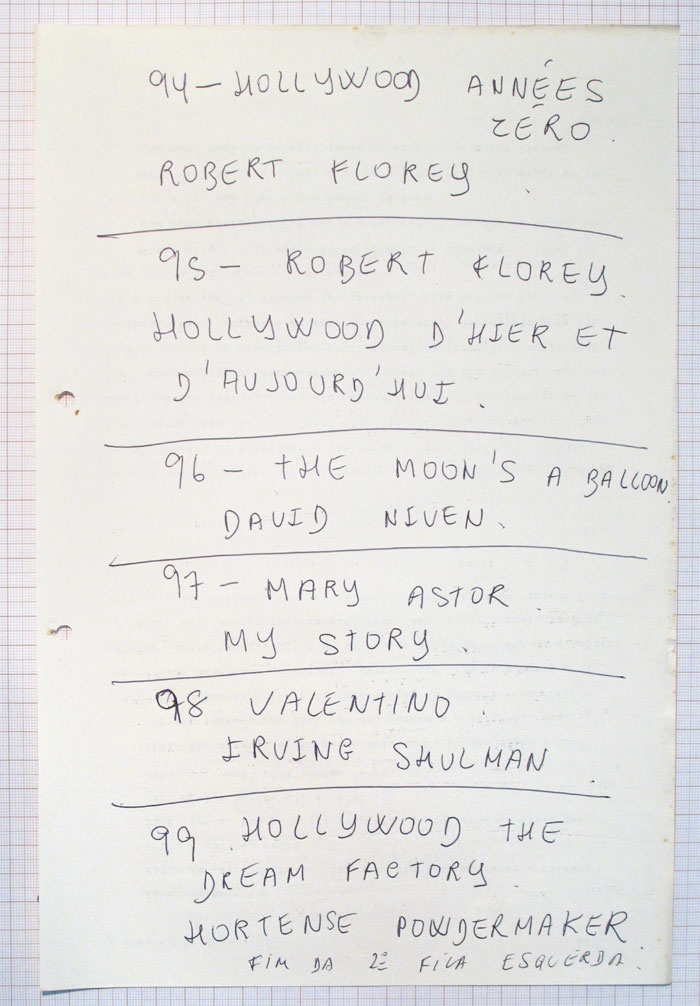 94 - HOLLYWOOD ANNÉES
ZÉRO.
ROBERT FLOREY.
95 - ROBERT FLOREY.
HOLLYWOOD D'HIER ET
D'AUJOURD'HUI.
96 - THE MOON'S A BALLOON.
DAVID NIVEN.
97 - MARY ASTOR.
MY STORY.
98 VALENTINO.
IRVING SHULMAN.
99 HOLLYWOOD THE
DREAM FACTORY.
HORTENSE POWDERMAKER
FIM DA 2ª FILA ESQUERDA.